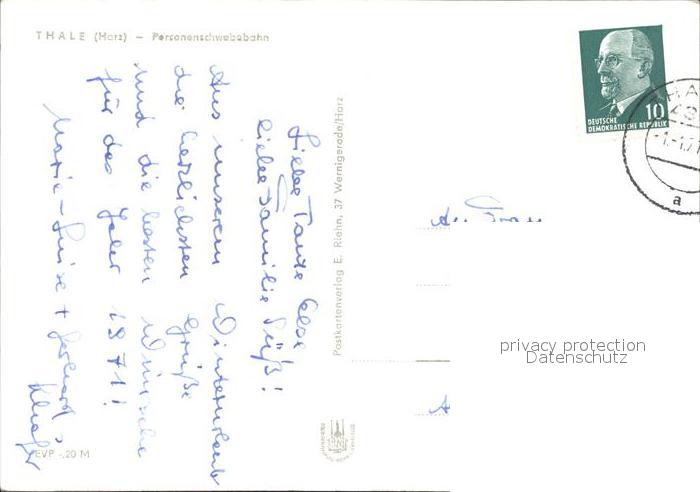 THALE (Harz) — Personenschwebebahn
Liebe Tante Else
liebe Familie Süß!
Aus unserem Winterurlaub
die herzlichsten Grüße
und die besten Wünsche
für das Jahr 1971!
Marie-Luise + Gerhard
EVP -.20 M
Postkartenverlag E. Riehn, 37 Wernigerode/Harz
DEUTSCHE
DEMOKRATISCHE REPUBLIK
10
a
An Frau
privacy protection
Datenschutz